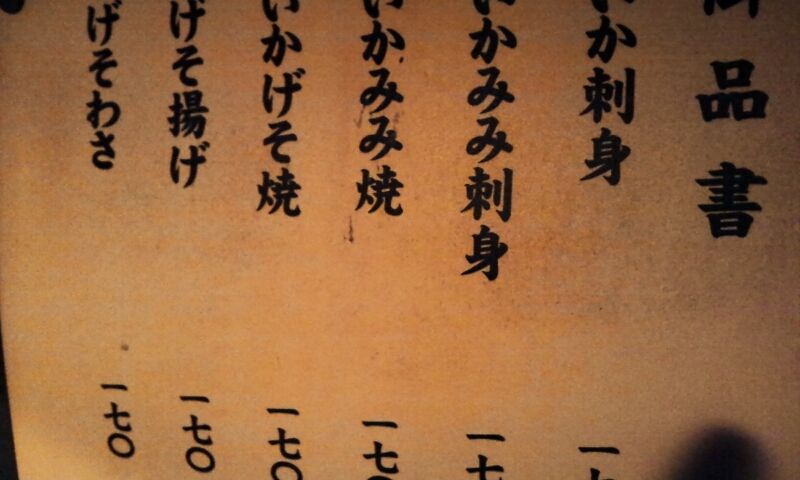 御品書
いか刺身
一七
いかみみ刺身
一七
いかみみ焼
一七〇
いかげそ焼
一七〇
げそ揚げ
一七〇
げそわさ
一七〇